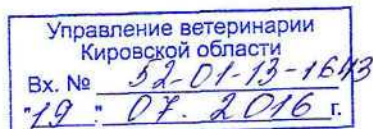 Управление ветеринарии
Кировской области
Вх. № 52-01-13-1643
"19" 07. 2016 г.